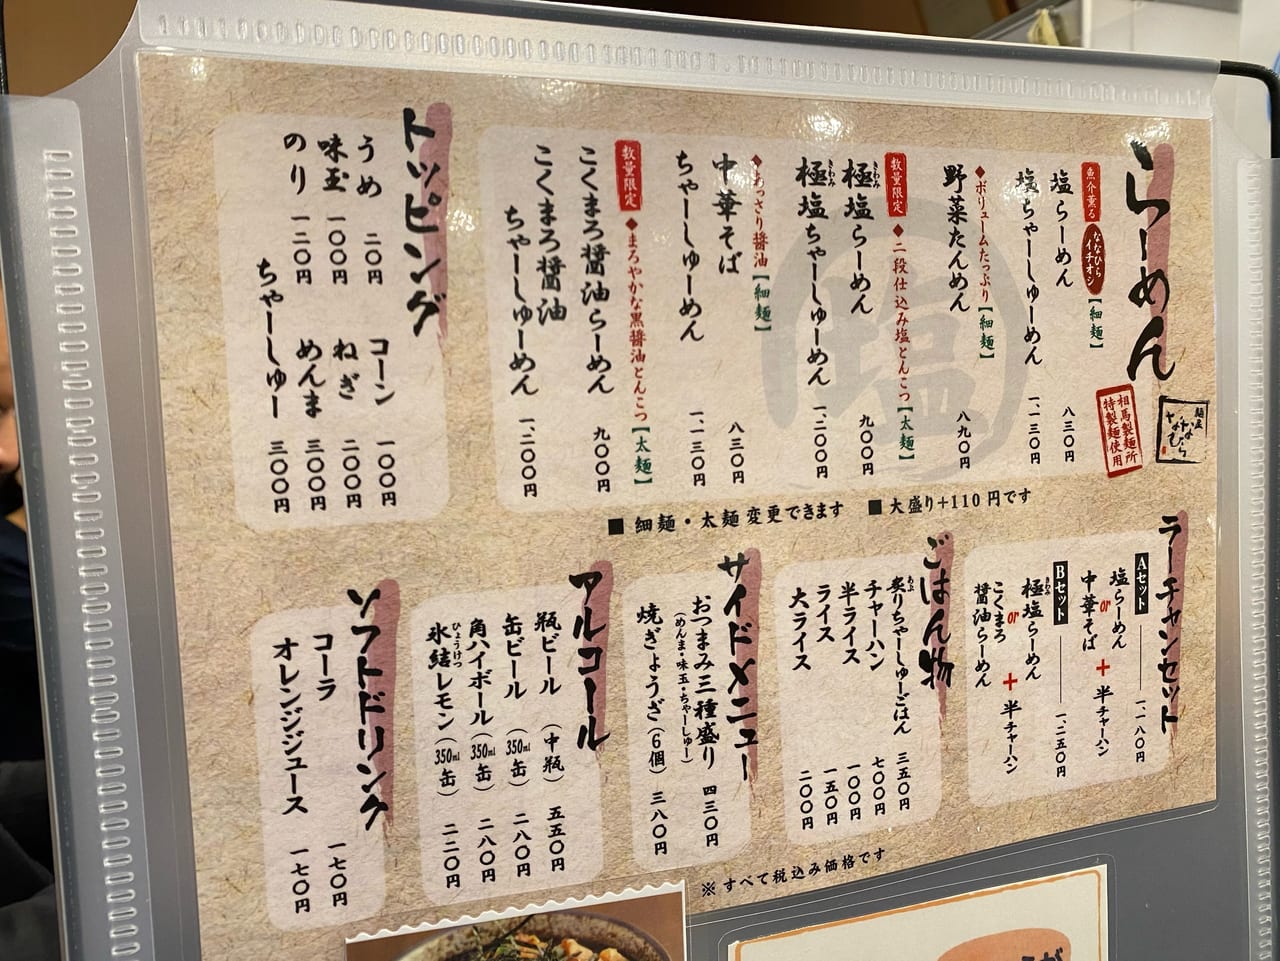 らーめん
麺屋
ななひら
相馬製麺所
特製麺使用
魚介薫る
ななひら
イチオシ
【細麺】
塩らーめん 八三〇円
塩ちゃーしゅーめん 一、一三〇円
◆ボリュームたっぷり【細麺】
野菜たんめん 八九〇円
数量限定
◆二段仕込み塩とんこつ【太麺】
極塩らーめん 九〇〇円
きわみ
極塩ちゃーしゅーめん 一、二〇〇円
きわみ
◆あっさり醤油【細麺】
中華そば 八三〇円
ちゃーしゅーめん 一、一三〇円
数量限定
◆まろやかな黒醤油とんこつ【太麺】
こくまろ醤油らーめん 九〇〇円
こくまろ醤油
ちゃーしゅーめん 一、二〇〇円
塩
トッピング
うめ 二〇円
味玉 一〇〇円
のり 一二〇円
コーン 一〇〇円
ねぎ 二〇〇円
めんま 三〇〇円
ちゃーしゅー 三〇〇円
■ 細麺・太麺変更できます ■ 大盛り+110円です
ラーチャンセット
Aセット 一、一八〇円
塩らーめん
or
中華そば
+
半チャーハン
Bセット 一、二五〇円
極塩らーめん
きわみ
or
こくまろ
醤油らーめん
+
半チャーハン
ごはん物
炙りちゃーしゅーごはん 三五〇円
あぶ
チャーハン 七〇〇円
半ライス 一〇〇円
ライス 一五〇円
大ライス 二〇〇円
サイドメニュー
おつまみ三種盛り 四三〇円
(めんま・味玉・ちゃーしゅー)
焼ぎょうざ(6個) 三八〇円
アルコール
瓶ビール(中瓶) 五五〇円
缶ビール(350ml缶) 二八〇円
角ハイボール(350ml缶) 二八〇円
氷結レモン(350ml缶) 二二〇円
ひょうけつ
ソフトドリンク
コーラ 一七〇円
オレンジジュース 一七〇円
※すべて税込み価格です